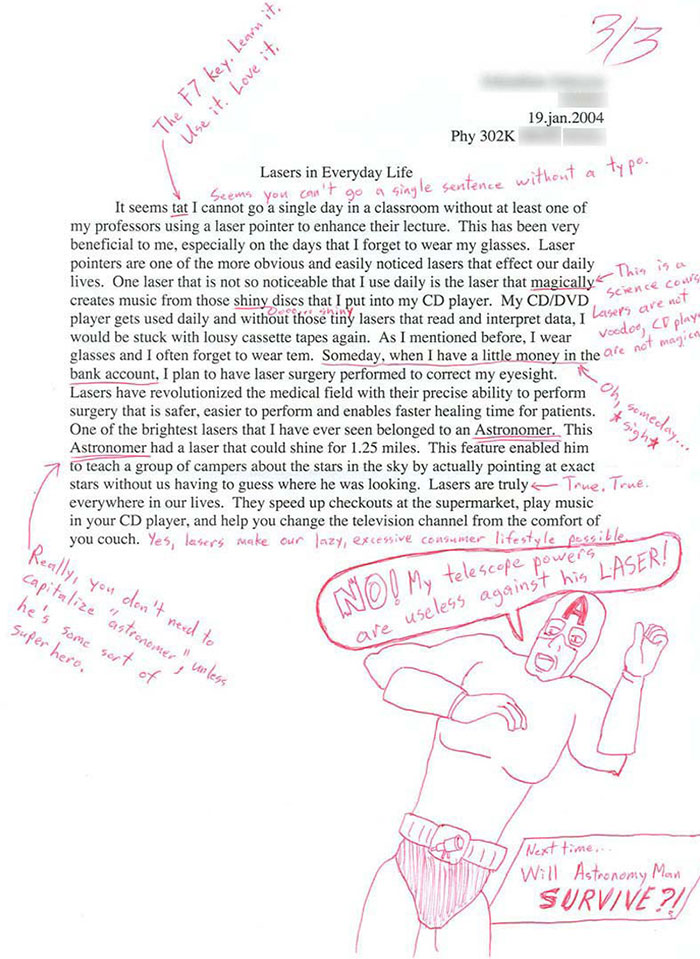 The F7 key. Learn it.
Use it. Love it.
3/3
19.jan.2004
Phy 302K
Lasers in Everyday Life
Seems you can't go a single sentence without a typo.
It seems tat I cannot go a single day in a classroom without at least one of
my professors using a laser pointer to enhance their lecture. This has been very
beneficial to me, especially on the days that I forget to wear my glasses. Laser
pointers are one of the more obvious and easily noticed lasers that effect our daily
lives. One laser that is not so noticeable that I use daily is the laser that magically
creates music from those shiny discs that I put into my CD player. My CD/DVD
player gets used daily and without those tiny lasers that read and interpret data, I
would be stuck with lousy cassette tapes again. As I mentioned before, I wear
glasses and I often forget to wear tem. Someday, when I have a little money in the
bank account, I plan to have laser surgery performed to correct my eyesight.
Lasers have revolutionized the medical field with their precise ability to perform
surgery that is safer, easier to perform and enables faster healing time for patients.
One of the brightest lasers that I have ever seen belonged to an Astronomer. This
Astronomer had a laser that could shine for 1.25 miles. This feature enabled him
to teach a group of campers about the stars in the sky by actually pointing at exact
stars without us having to guess where he was looking. Lasers are truly
everywhere in our lives. They speed up checkouts at the supermarket, play music
in your CD player, and help you change the television channel from the comfort of
you couch.
This is a
science cours
Lasers are not
voodoo, CD play
are not magica
shiny
Oh, someday...
*sigh*
True. True.
Yes, lasers make our lazy, excessive consumer lifestyle possible
Really, you don't need to
capitalize "astronomer," unless
he's some sort of
superhero.
NO! My telescope powers
are useless against his LASER!
A
Next time...
Will Astronomy Man
SURVIVE?!